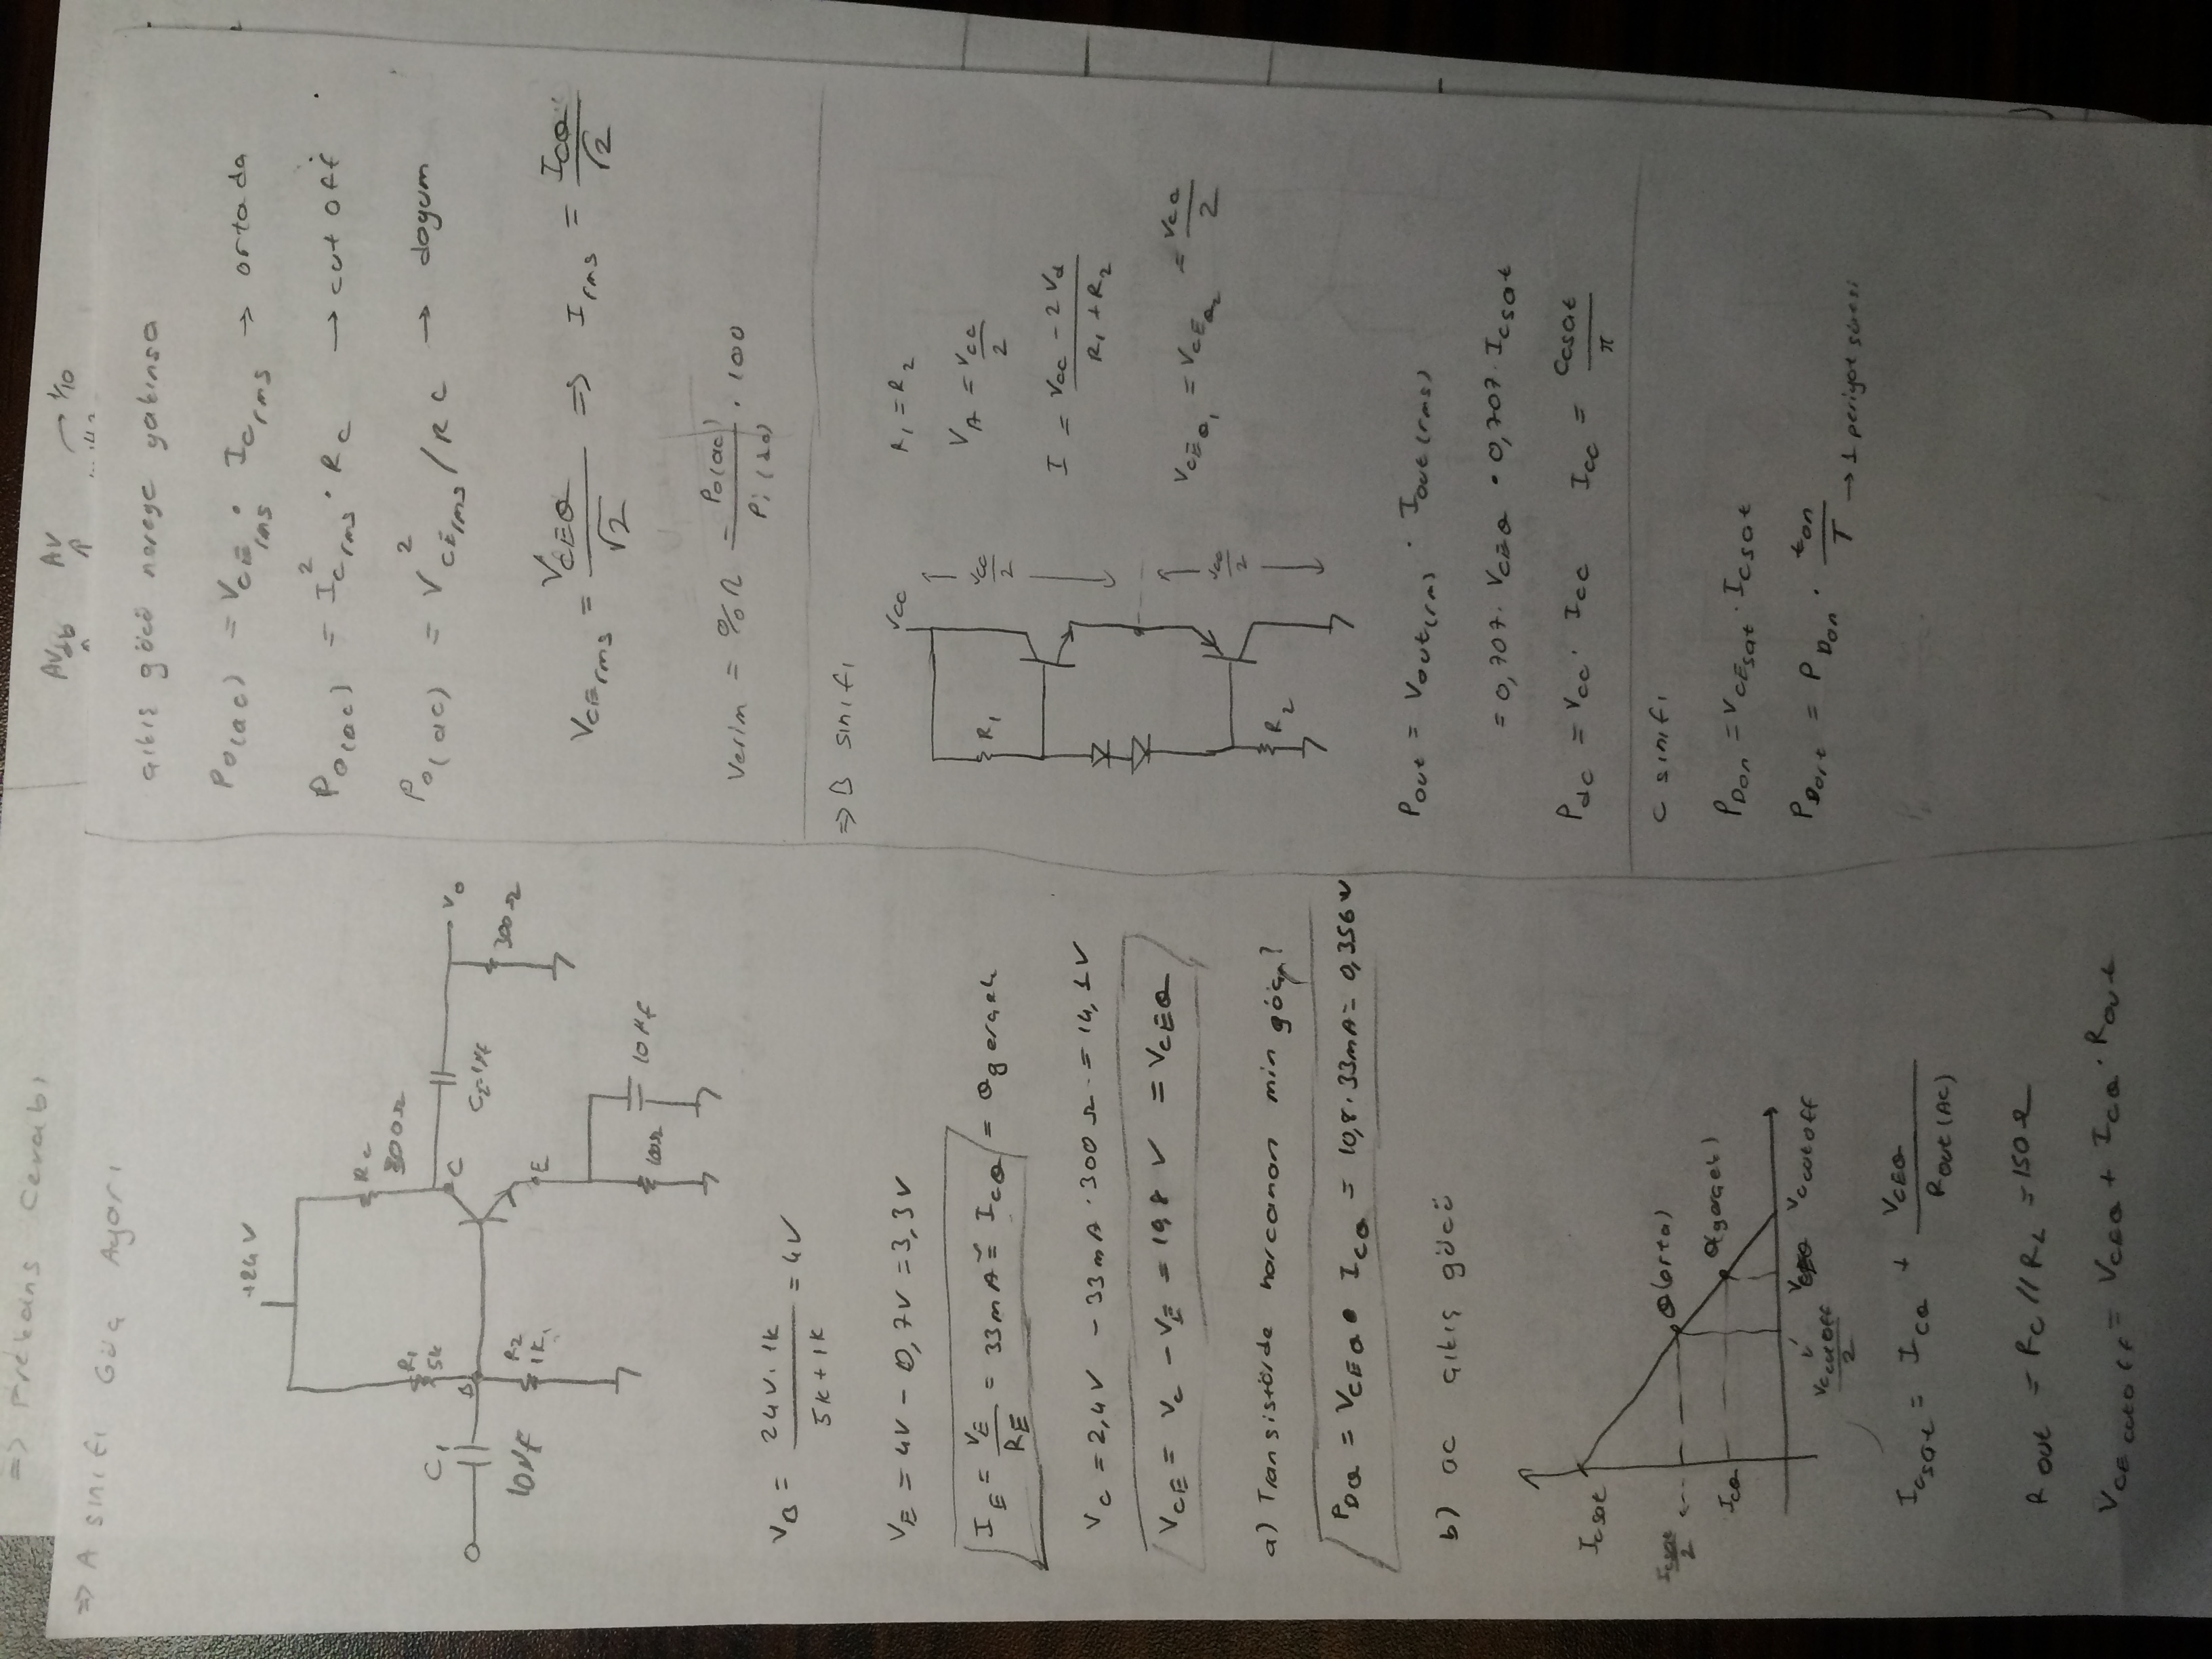 => Frekans Cevabı
AVdb AV 1/10
=> A sınıfı Güç Ayarı
+24V
Rc
300Ω
R1
5k
C1
10µf
B
R2
1k
C
C2=1µf
Vo
300Ω
E
100Ω
10µf
VB = 24V.1k / 5k+1k = 4V
VE = 4V - 0,7V = 3,3V
IE = VE/RE = 33mA ≅ ICQ = Qgerçek
Vc = 2,4V - 33mA.300Ω = 14,1V
VCE = Vc - VE = 10,8 V = VCEQ
a) Transistörde harcanan min güç?
PDQ = VCEQ • ICQ = 10,8.33mA = 0,356W
b) ac çıkış gücü
Icsat
Icsat/2
Q(orta)
ICQ
Q(gerçek)
Vccutoff/2
VCEQ
Vccutoff
Icsat = ICQ + VCEQ / Rout(AC)
Rout = Rc//RL = 150Ω
VCEcutoff = VCEQ + ICQ.Rout
çıkış gücü nereye yakınsa
Po(ac) = VCErms . ICrms → ortada
Po(ac) = I²Crms . Rc → cut off
Po(ac) = V²CErms/RC → doyum
VCErms = VCEQ/√2 => Irms = ICQ/√2
Verim = %η = Po(ac)/Pi(dc) . 100
=> B sınıfı
VCC
R1
VCC/2
VCC/2
R2
R1 = R2
VA = VCC/2
I = VCC - 2Vd / R1+R2
VCEQ1 = VCEQ2 = VCC/2
Pout = Vout(rm) . Iout(rms)
= 0,707. VCEQ • 0,707. Icsat
Pdc = VCC . ICC ICC = Ccsat/π
C sınıfı
PDon = VCEsat . Icsat
PDort = PDon . ton/T → 1 periyot süresi